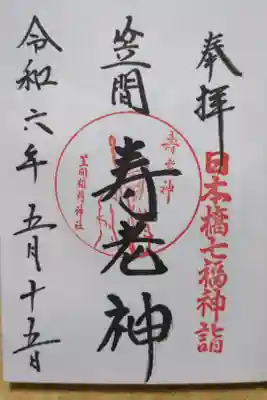 奉拝
日本橋七福神詣
笠間
寿老神
寿老神
笠間稲荷神社
令和六年五月十五日